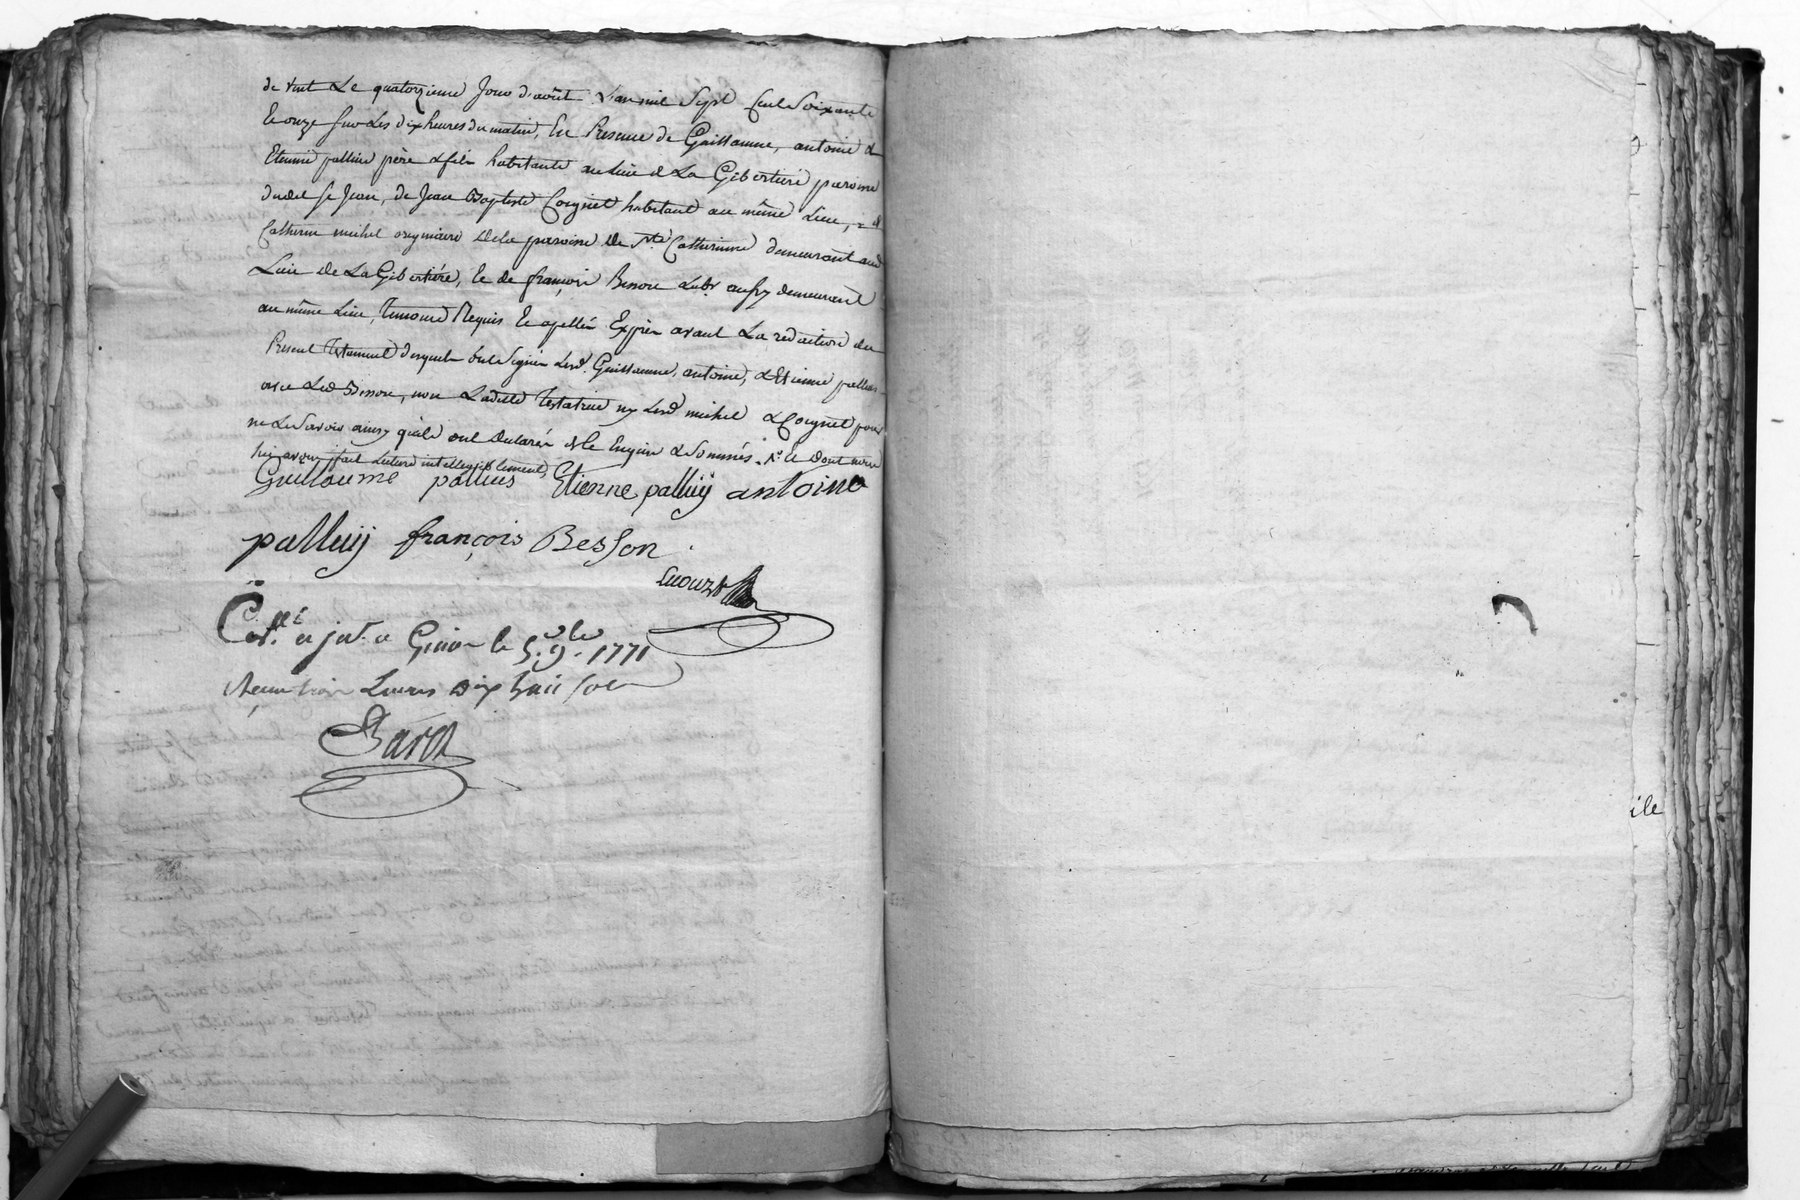 Le quatorzieme Jour d'août L'an mil Sept Cent Soixante
& onze sur Les dix heures du matin, En Presence de Guillaume, antoine &
Etienne pallue père & fils habitants au lieu de La Gibertiere paroisse
dudit St Jean, de Jean Baptiste Coignet habitant au même Lieu, &
Catherine michel originaire de la paroisse de Ste Catherinne demeurant aud
Lieu de La Gibertiére, & de françois Besson demeurant
au même Lieu, Temoins Requis & apellés avant La redaction du
Present Testament desquels ont Signés Lesd. Guillaume, antoine, & Etienne pallue
avec Led Besson, non Ladite Testatrice ny Lesd michel & Coignet pour
ne Le Savoir ainsy quils ont declarés de ce Enquis & Sommés.
fait Lecture intelligiblement
Guillaume pallius Etienne palluy antoine
palluy françois Besson
a Givor le 5. 9.bre 1771
Recu trois Livres dix huit sols